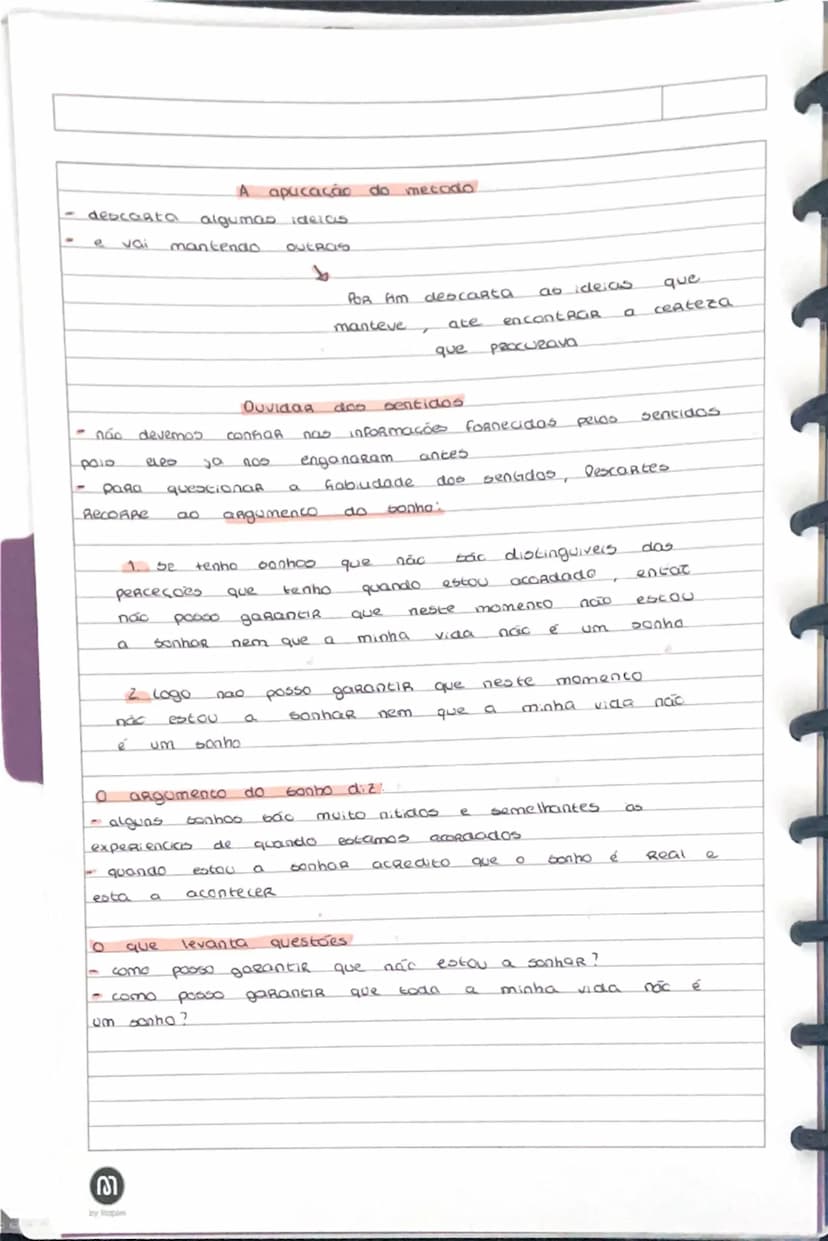 A aplicação do metodo
- descarta algumas ideias
- e vai mantendo outras
Por fim descarta as ideias que
manteve, ate encontrar a certeza
que procurava
Duvidar dos sentidos
- não devemos confiar nas informações fornecidas pelos sentidos
pois eles ja nos enganaram antes
- para questionar a fiabilidade dos sentidos, Descartes
recorre ao argumento do sonho:
1. Se tenho sonhos que não são distinguiveis das
perceções que tenho quando estou acordado, entao
não posso garantir que neste momento não estou
a sonhar nem que a minha vida não é um sonho
2 Logo nao posso garantir que neste momento
não estou a sonhar nem que a minha vida não
é um sonho
O argumento do sonho diz:
- alguns sonhos são muito nitidos e semelhantes as
experiencias de quando estamos acordados
- quando estou a sonhar acredito que o sonho é real e
esta a acontecer
O que levanta questões
- como posso garantir que não estou a sonhar?
- como posso garantir que toda a minha vida não é
um sonho?